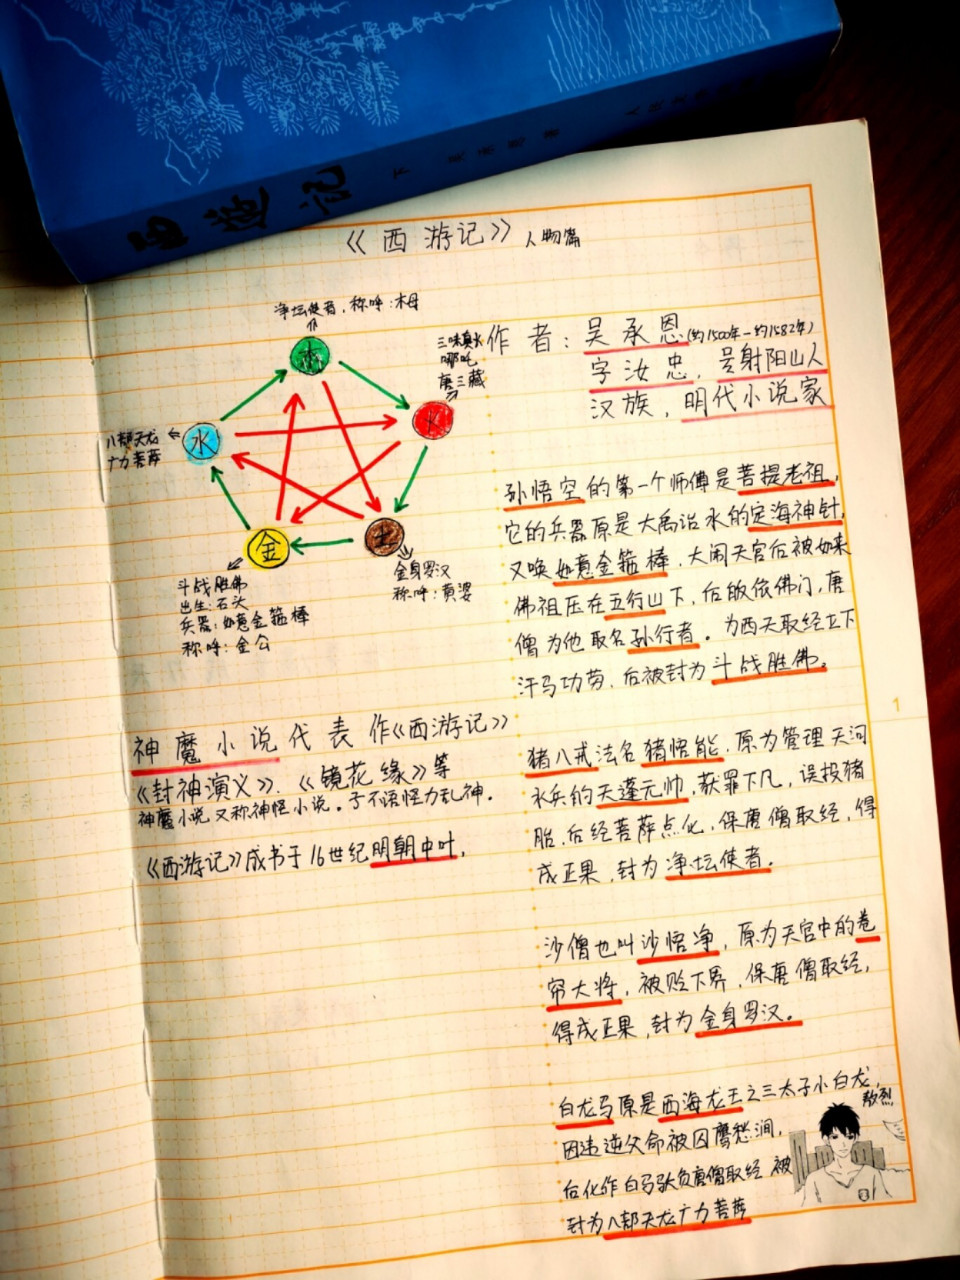 西游记 下 吴承恩 著
《西游记》人物篇
净坛使者，称呼：木母
木
三昧真火
哪吒
唐三藏
火
水
八部天龙
广力菩萨
金
土
斗战胜佛
出生：石头
兵器：如意金箍棒
称呼：金公
金身罗汉
称呼：黄婆
神魔小说代表作《西游记》
《封神演义》、《镜花缘》等
神魔小说又称神怪小说。子不语怪力乱神。
《西游记》成书于16世纪明朝中叶，
作者：吴承恩(约1500年-约1582年)
字汝忠，号射阳山人
汉族，明代小说家
孙悟空的第一个师傅是菩提老祖，
它的兵器原是大禹治水的定海神针，
又唤如意金箍棒，大闹天宫后被如来
佛祖压在五行山下，后皈依佛门，唐
僧为他取名孙行者。为西天取经立下
汗马功劳，后被封为斗战胜佛。
猪八戒法名猪悟能，原为管理天河
水兵的天蓬元帅，获罪下凡，误投猪
胎，后经菩萨点化，保唐僧取经，得
成正果，封为净坛使者。
沙僧也叫沙悟净，原为天宫中的卷
帘大将，被贬下界，保唐僧取经，
得成正果，封为金身罗汉。
白龙马原是西海龙王之三太子小白龙，
敖烈
因违逆父命被囚鹰愁涧，
后化作白马驮负唐僧取经 被
封为八部天龙广力菩萨
1